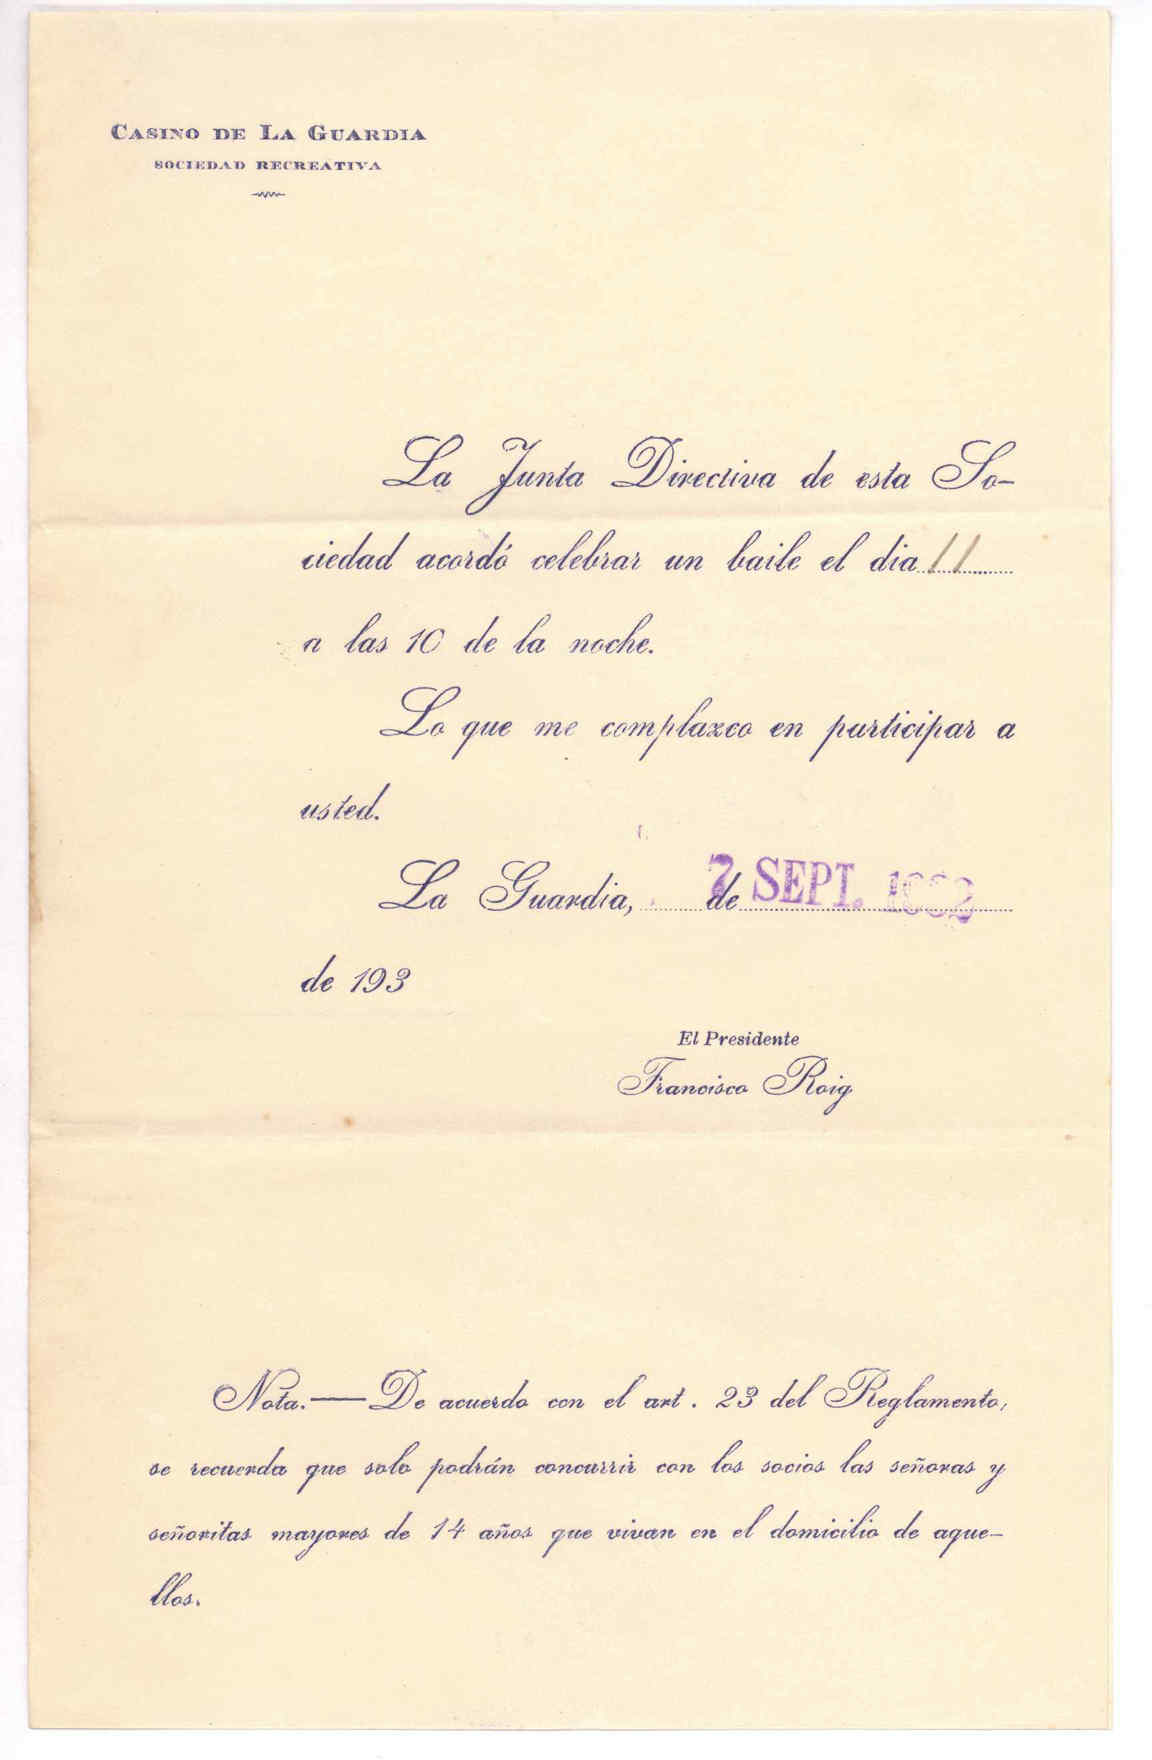 CASINO DE LA GUARDIA
SOCIEDAD RECREATIVA
La Junta Directiva de esta So-
ciedad acordó celebrar un baile el dia 11
a las 10 de la noche.
Lo que me complazco en participar a
usted.
La Guardia, 7 de SEPT. 1932
de 193
El Presidente
Francisco Roig
Nota.—De acuerdo con el art. 23 del Reglamento,
se recuerda que solo podrán concurrir con los socios las señoras y
señoritas mayores de 14 años que vivan en el domicilio de aque-
llos.